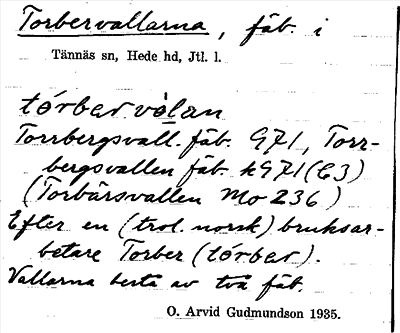 Torbervallarna, fäb. i
Tännäs sn, Hede hd, Jtl. l.
tórbervàlan
Torrbergsvall. fäb. G71, Torr-
bergsvallen fäb. kG71(C3)
(Torbärsvallen Mo 236)
Efter en (trol. norsk) bruksar-
betare Torber (tórber).
Vallarna bestå av två fäb.
O. Arvid Gudmundson 1935.